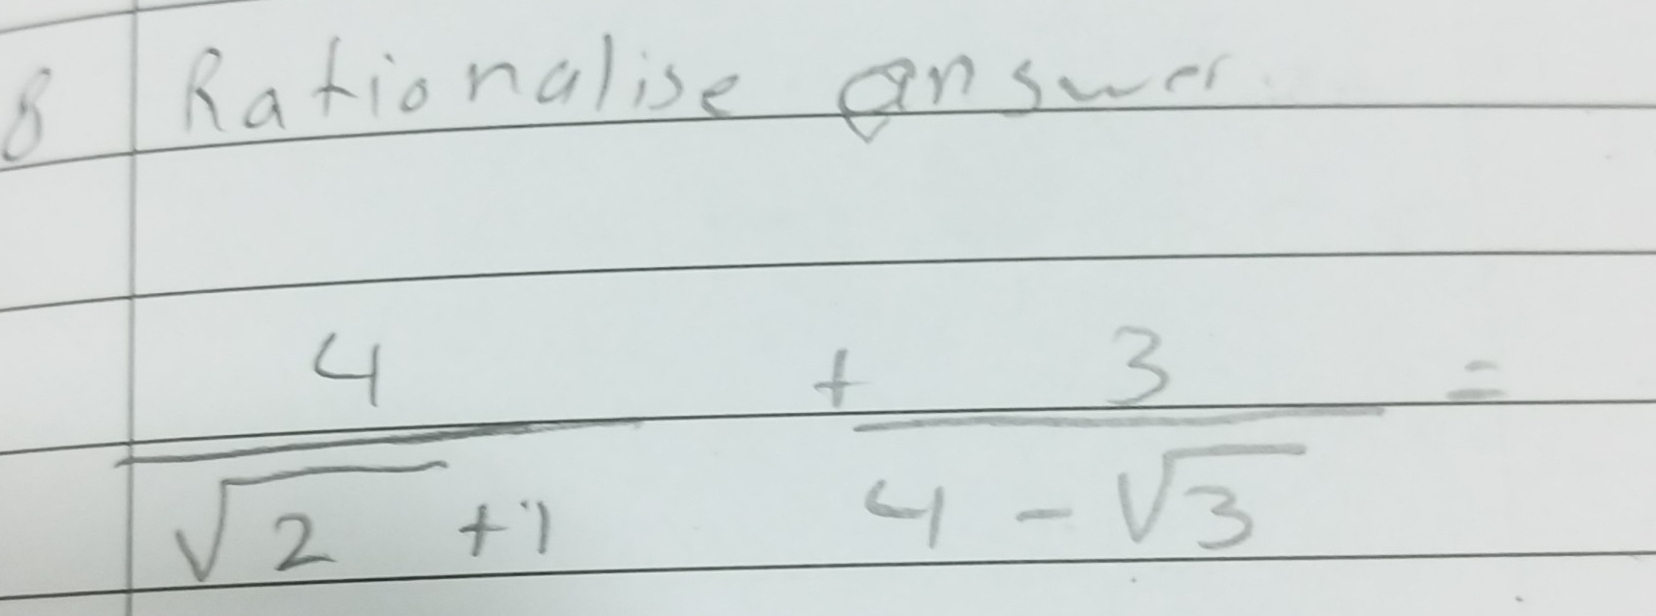 8 Rationalise answer
4 + 3 =
√2 +1 4 - √3